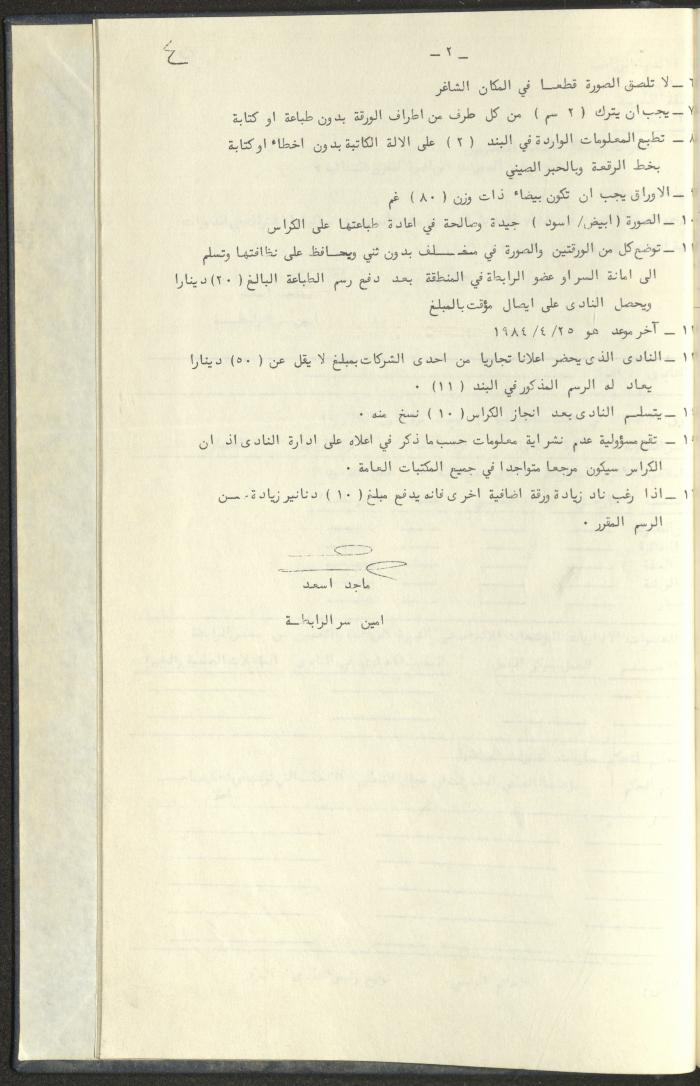 ٤
ـ ٢ ـ
٦ ـ لا تلصق الصورة قطعـا في المكان الشاغر
٧ ـ يجب ان يترك ( ٢ سم ) من كل طرف من اطراف الورقة بدون طباعة او كتابة
٨ ـ تطبع المعلومات الواردة في البند ( ٢ ) على الالة الكاتبة بدون اخطاء او كتابة
بخط الرقعة وبالحبر الصيني
٩ ـ الاوراق يجب ان تكون بيضاء ذات وزن ( ٨٠ ) غم
١٠ ـ الصورة ( ابيض/ اسود ) جيدة وصالحة في اعادة طباعتها على الكراس
١١ ـ توضع كل من الورقتين والصورة في مغـلف بدون ثني ويحـافظ على نظافتها وتسلم
الى امانة السر او عضو الرابطة في المنطقة بعد دفع رسم الطباعة البالغ ( ٢٠ ) دينارا
ويحصل النادى على ايصال مؤقت بالمبلغ
١٢ ـ آخر موعد هو ٢٥/ ٤/ ١٩٨٤
١٣ ـ النادى الذى يحضر اعلانا تجاريا من احدى الشركات بمبلغ لا يقل عن ( ٥٠ ) دينارا
يعاد له الرسم المذكور في البند ( ١١ ) ٠
١٤ ـ يتسلـم النادى بعد انجاز الكراس ( ١٠ ) نسخ منه ٠
١٥ ـ تقع مسؤولية عدم نشر اية معلومات حسب ما ذكر في اعلاه على ادارة النادى اذ ان
الكراس سيكون مرجعا متواجدا في جميع المكتبات العامة ٠
١٦ ـ اذا رغب ناد زيادة ورقة اضافية اخرى فانه يدفع مبلغ ( ١٠ ) دنانير زيادة عـن
الرسم المقرر ٠
ماجد اسعد
امين سر الرابطـة